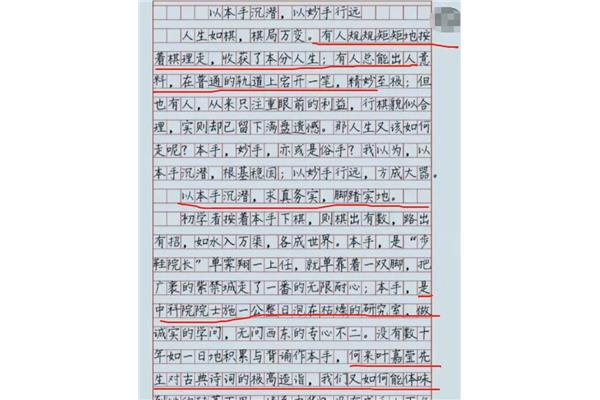 以本手沉潜，以妙手行远
人生如棋，棋局万变。有人规规矩矩地按
着棋理走，收获了本分人生；有人总能出人意
料，在普通的轨道上宕开一笔，精妙至极；但
也有人，从来只注重眼前的利益，行棋貌似合
理，实则却已留下满盘遗憾。那人生又该如何
走呢？本手，妙手，亦或是俗手？我以为，以
本手沉潜，根基稳固；以妙手行远，方成大器。
以本手沉潜，求真务实，脚踏实地。
初学者按着本手下棋，则棋出有数，路出
有招，如水入万渠，各成世界。本手，是“步
鞋院长”单霁翔一上任，就单靠着一双脚，把
广袤的紫禁城走了一番的无限耐心；本手，是
中科院院士施一公整日沉在枯燥的研究室，做
诚实的学问，无问西东的专心不二。没有数十
年如一日地积累与背诵作本手，何来叶嘉莹先
生对古典诗词的极高造诣，我们又如何能体味